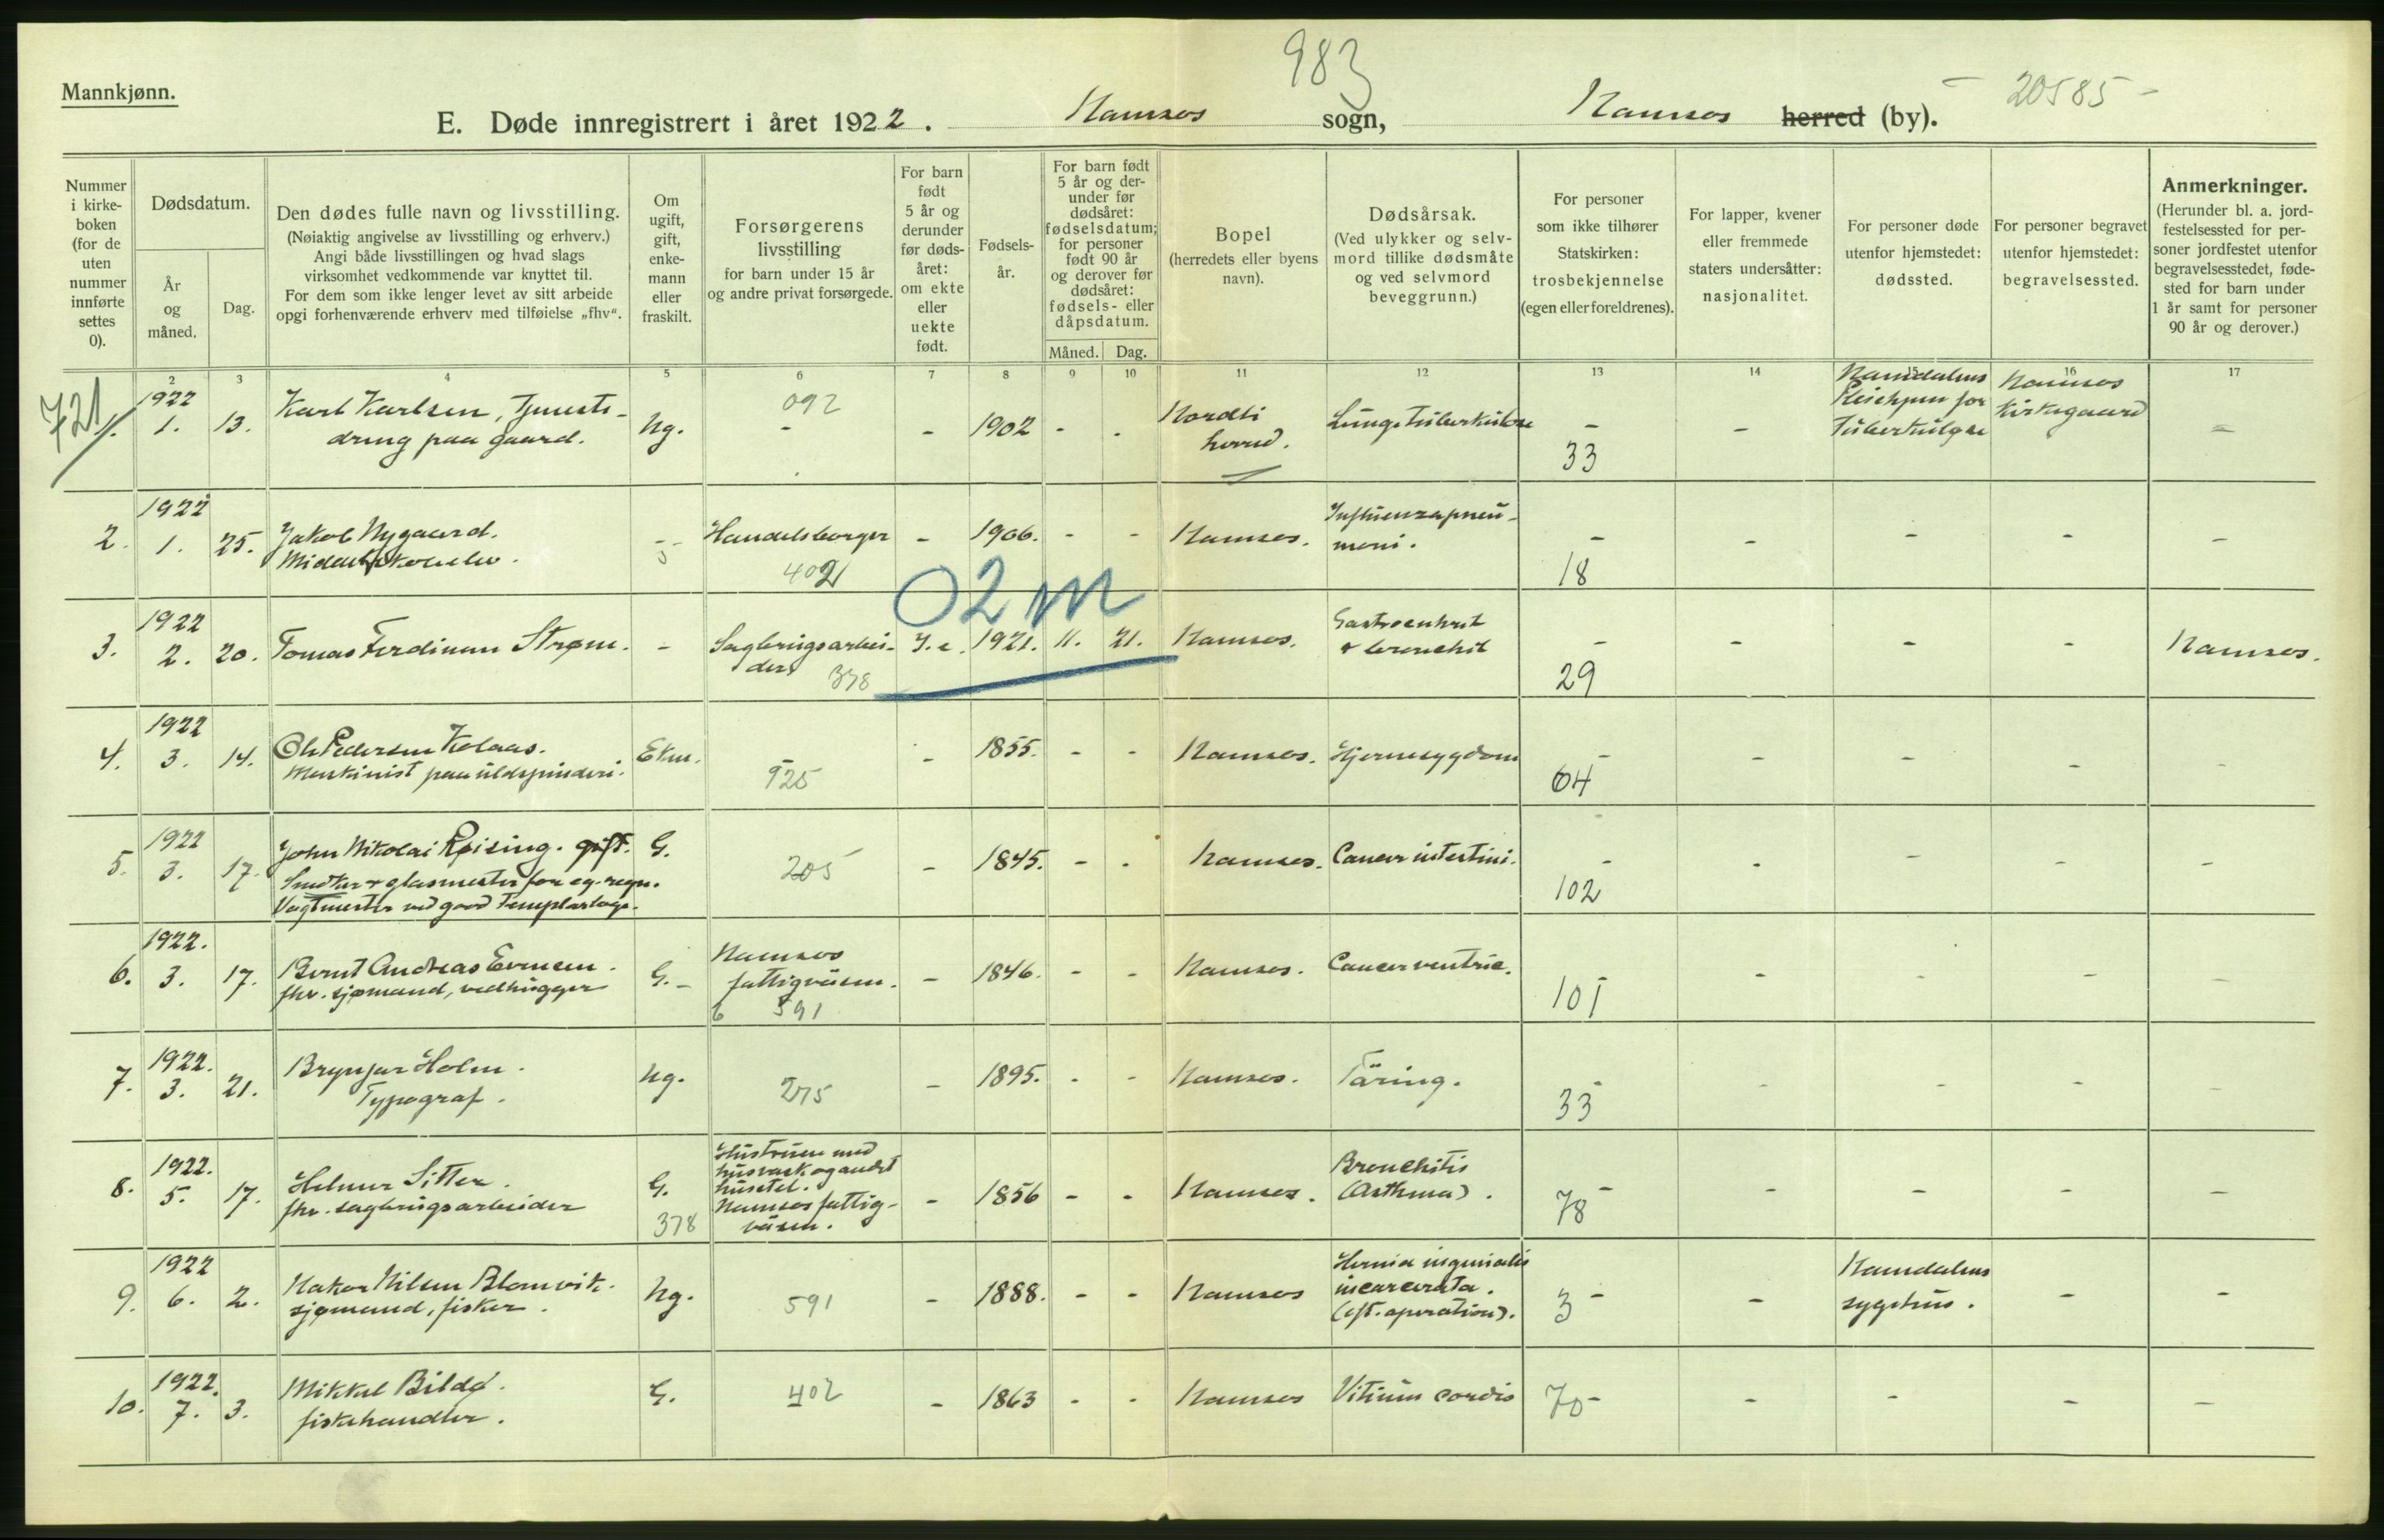 983
Mannkjønn.
E. Døde innregistrert i året 1922. Namsos sogn, Namsos herred (by). - 20585 -
Nummer i kirkeboken (for de uten nummer innførte settes 0).
Dødsdatum.
År og måned.
Dag.
Den dødes fulle navn og livsstilling.
(Nøiaktig angivelse av livsstilling og erhverv.)
Angi både livsstillingen og hvad slags
virksomhet vedkommende var knyttet til.
For dem som ikke lenger levet av sitt arbeide
opgi forhenværende erhverv med tilføielse „fhv“.
Om ugift, gift, enkemann eller fraskilt.
Forsørgerens livsstilling
for barn under 15 år
og andre privat forsørgede.
For barn født 5 år og derunder før dødsåret: om ekte eller uekte født.
Fødselsår.
For barn født 5 år og derunder før dødsåret: fødselsdatum; for personer født 90 år og derover før dødsåret: fødsels- eller dåpsdatum.
Måned. Dag.
Bopel
(herredets eller byens navn).
Dødsårsak.
(Ved ulykker og selvmord tillike dødsmåte og ved selvmord beveggrunn.)
For personer som ikke tilhører Statskirken: trosbekjennelse (egen eller foreldrenes).
For lapper, kvener eller fremmede staters undersåtter: nasjonalitet.
For personer døde utenfor hjemstedet: dødssted.
For personer begravet utenfor hjemstedet: begravelsessted.
Anmerkninger.
(Herunder bl. a. jordfestelsessted for personer jordfestet utenfor begravelsesstedet, fødested for barn under 1 år samt for personer 90 år og derover.)
2 3 4 5 6 7 8 9 10 11 12 13 14 15 16 17
721
1. 1922 1. 13. Karl Karlsen, tjenestedreng paa gaard. Ug. 092 - - 1902 - - Nordli herred. Lungetuberkulose - 33 - Namdalens Pleiehjem for Tuberkuløse Namsos Kirkegaard -
2. 1922 1. 25. Jakob Nygaard. Middelskoleelev. - Handelsborger 402 - 1906. - - Namsos. Influenzapneumoni. - 18 - - - -
02 m
3. 1922 2. 20. Tomas Ferdinan Strøm. - Sagbrugsarbeider 378 I.e. 1921. 11. 21. Namsos. Gastroenterit & bronchit - 29 - - - Namsos.
4. 1922 3. 14. Ole Pedersen Kolaas. Maskinist paa uldspinderi. Ekm. - 925 - 1855. - - Namsos. Hjernesygdom - 64 - - - -
5. 1922 3. 17. John Nikolai Røising. gift. Snedker & glasmester for eg. regn. Vagtmester ved good Templarloge. G. 205 - 1845. - - Namsos. Cancer intestini. - 102 - - - -
6. 1922. 3. 17. Bernt Andreas Evensen. fhv. sjømand, vedhugger G. - Namsos fattigväsen. 6 591 - 1846. - - Namsos. Cancer ventric. 101 - - - -
7. 1922. 3. 21. Brynjar Holm. Typograf. Ug. 275 - 1895. - - Namsos. Täring. - 33 - - - -
8. 1922. 5. 17. Helmer Sitter. fhv. sagbrugsarbeider G. 378 Hustruen med husvask og andet husstel. Namsos fattigväsen. - 1856 - - Namsos. Bronchitis (Asthma). - 78 - - - -
9. 1922 6. 2. Hakon Nilsen Blomvik. sjømand, fisker. Ug. 591 - 1888. - - Namsos Hernia inguinalis incarcerata. (eft. operation). 3 - - Namdalens sygehus. - -
10. 1922. 7. 3. Mikkel Bildø. fiskehandler. G. 402 - 1863 - - Namsos Vitium cordis 70 - - - - -